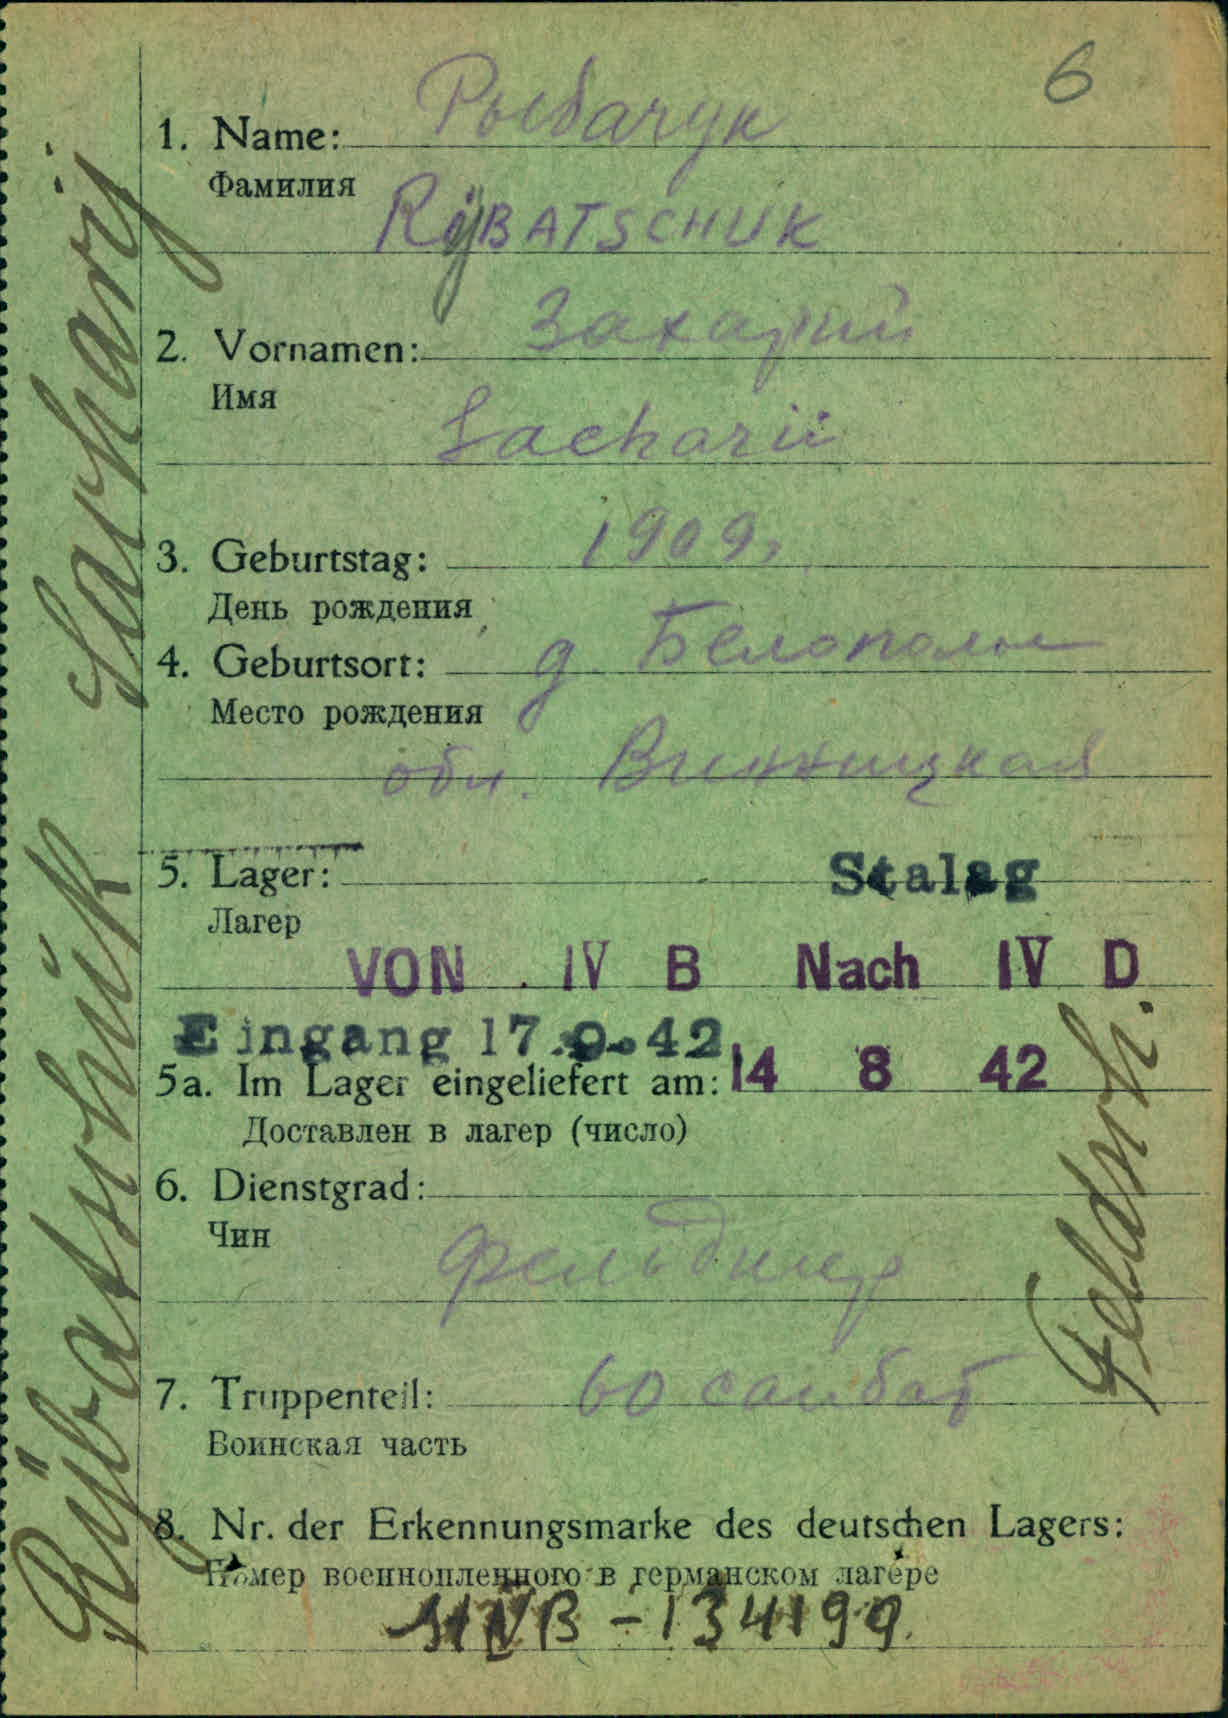 6
1. Name: Рыбачук
Фамилия
RÿBATSCHUK
2. Vornamen: Захарий
Имя
Sacharii
3. Geburtstag: 1909,
День рождения
4. Geburtsort: д Белополье
Место рождения
обл. Винницкая
5. Lager: Stalag
Лагер
VON . IV B Nach IV D
Eingang 17.9.42
5a. Im Lager eingeliefert am: 14 8 42
Доставлен в лагер (число)
6. Dienstgrad:
Чин
Фельдшер
7. Truppenteil: 60 санбат
Воинская часть
8. Nr. der Erkennungsmarke des deutschen Lagers:
Номер военнопленного в германском лагере
IVB - 134199.
Rÿbatschuk Sacharij
Feldsch.